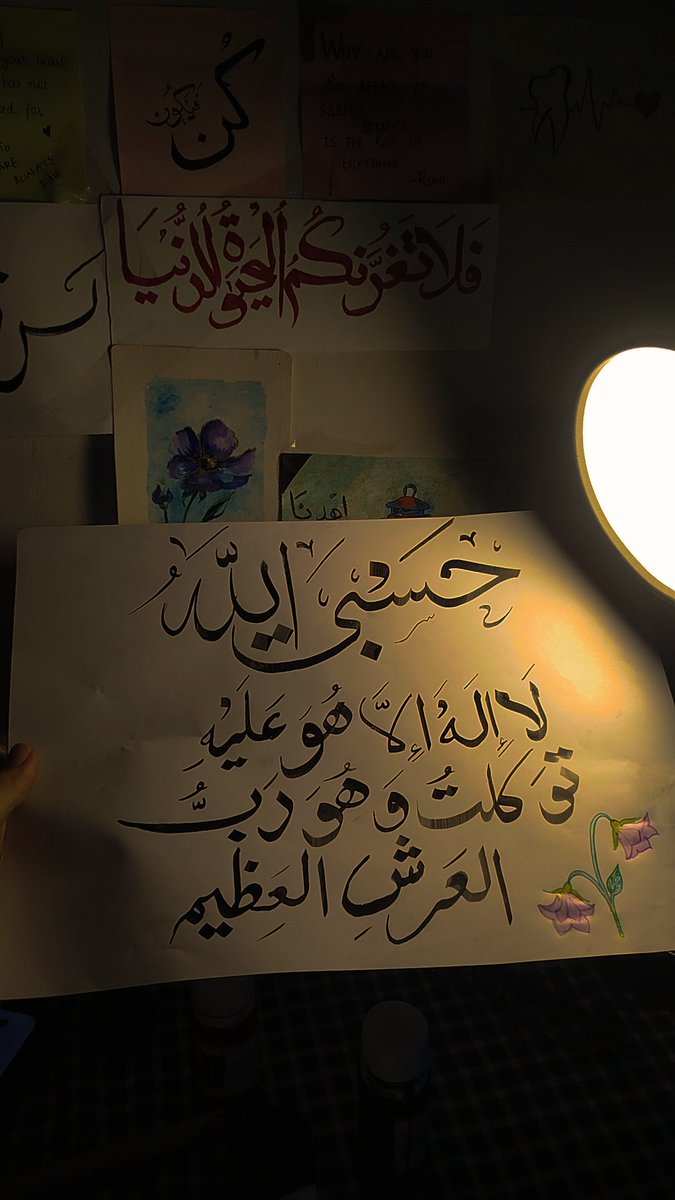 your heart
has not
ed for
TO
ARE ALWAYS
FINE
كُن
فَيَكُونُ
WHY ARE YOU
SO AFRAID OF
SILENCE,
SILENCE
IS THE ROOT OF
EVERYTHING
-RUMI
فَلَا تَغُرَّنَّكُمُ الْحَيَوٰةُ الدُّنْيَا
اهْدِنَا
حَسْبِيَ اللَّهُ
لَا إِلَهَ إِلَّا هُوَ عَلَيْهِ
تَوَكَلتُ وَهُوَ رَبُّ
العَرشِ العَظِيم